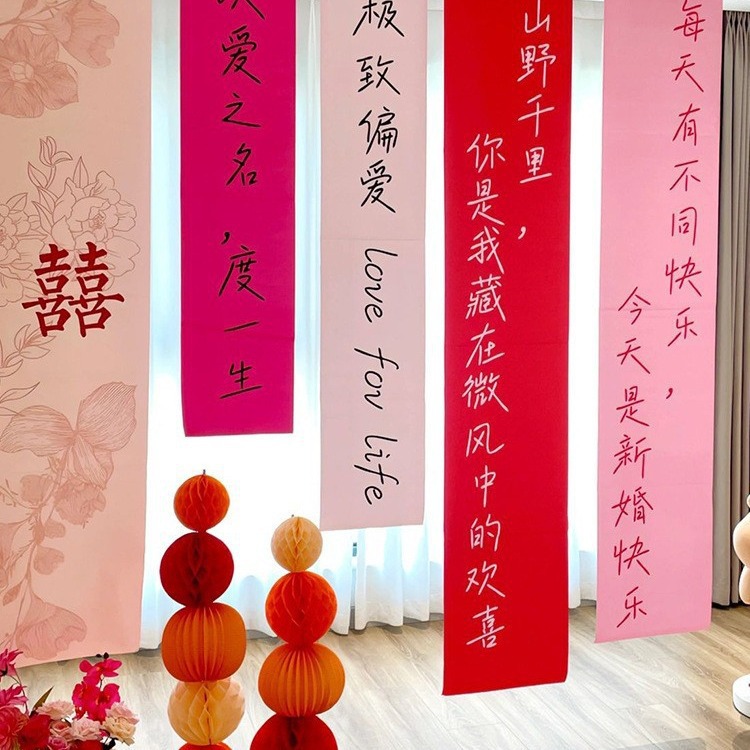 囍
爱之名，度一生
极致偏爱 love for life
山野千里
你是我藏在微风中的欢喜
每天有不同快乐，
今天是新婚快乐